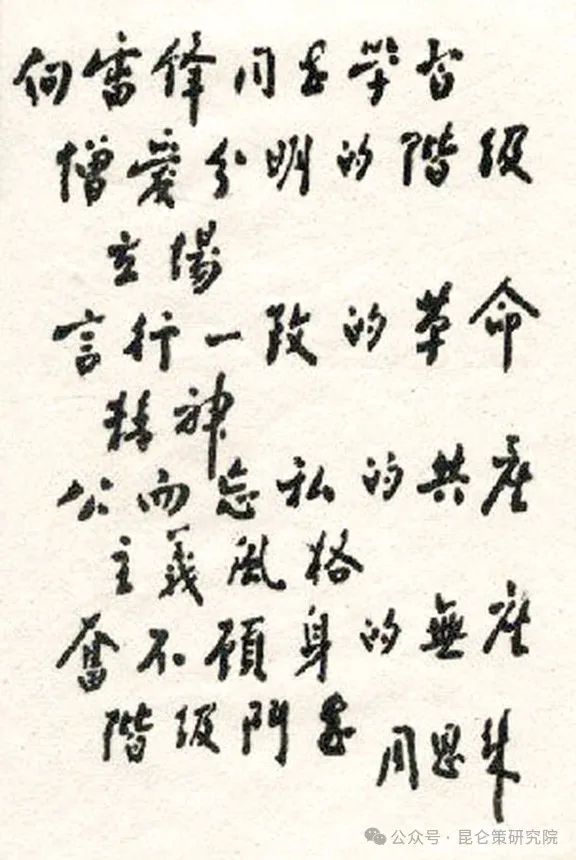 向雷锋同志学习
憎爱分明的階级
立場
言行一致的革命
精神
公而忘私的共产
主義風格
奮不顧身的無产
階级鬥志
周恩来
公众号·昆仑策研究院